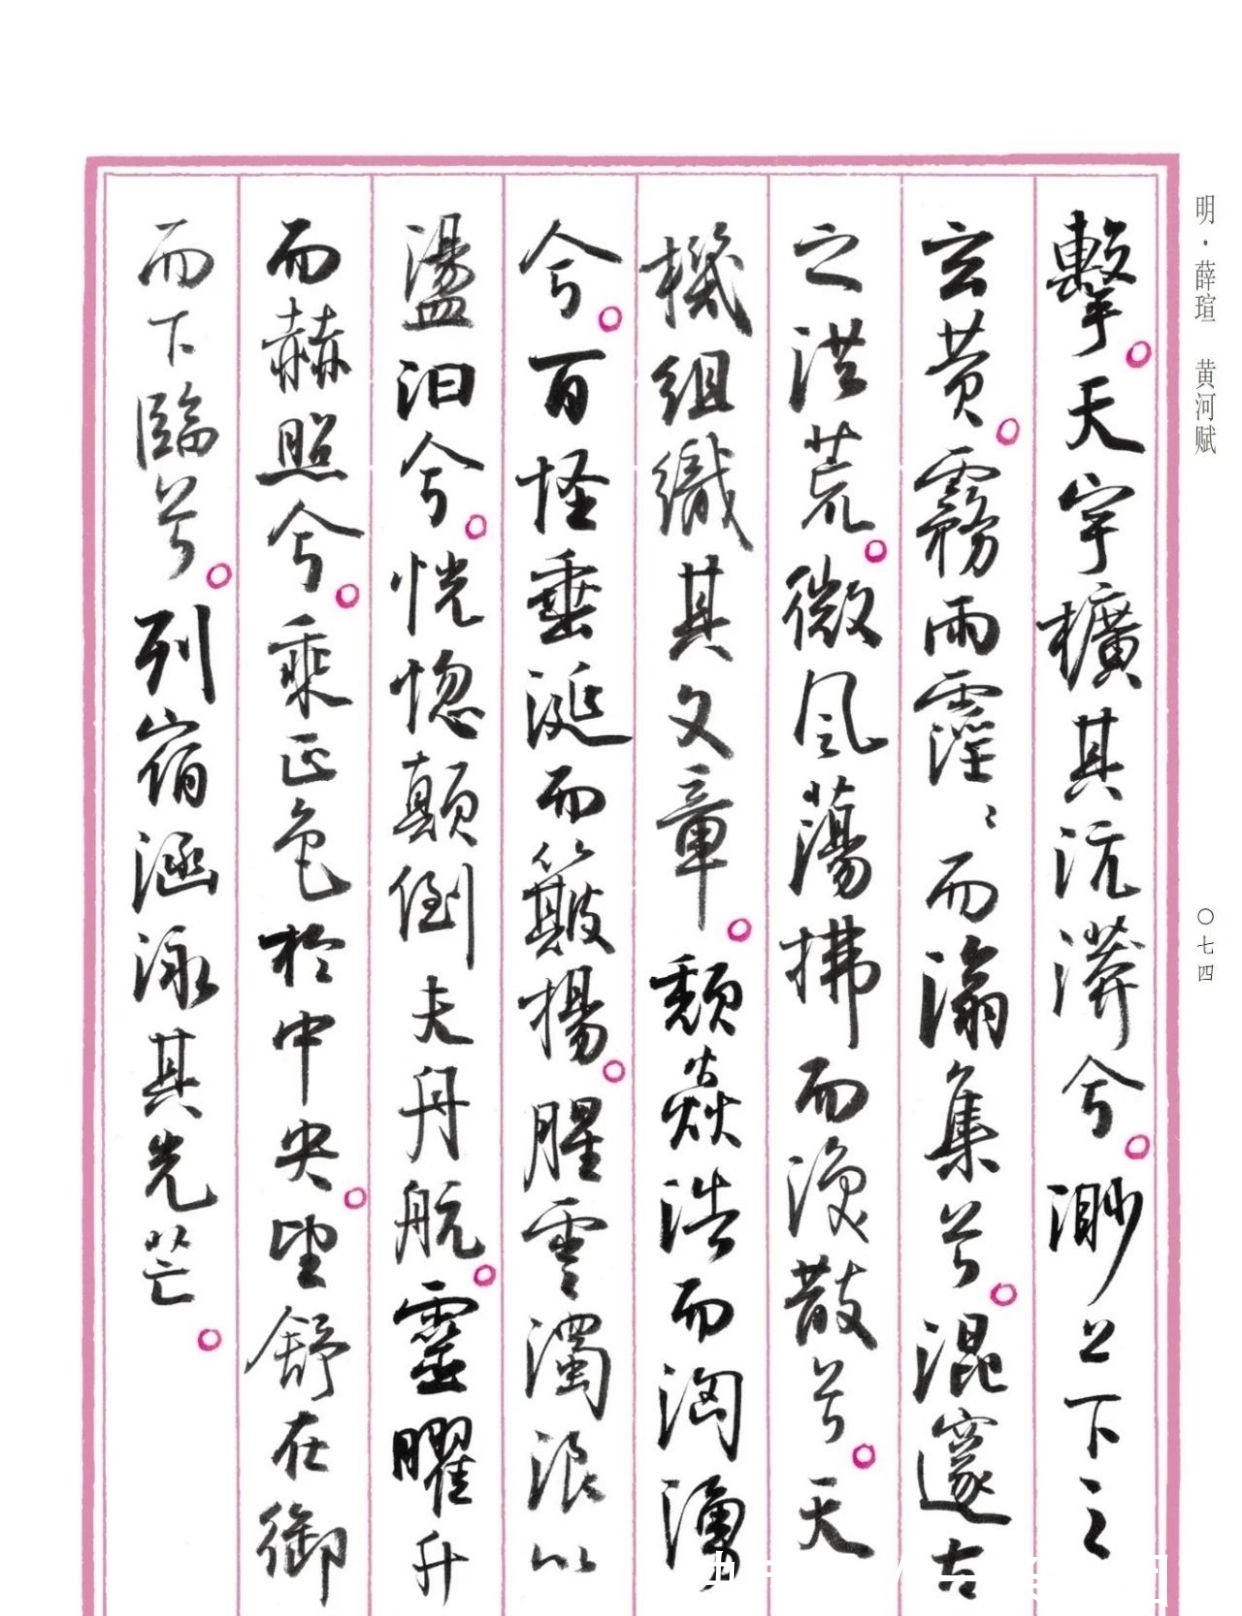 明·薛瑄 黄河赋
擊天宇擴其沆漭兮渺上下之
玄黄霧雨霪〻而滃集兮混邃古
之洪荒微風蕩拂而渙散兮天
機組織其文章頽焱浩而洶湧
兮百怪垂涎而簸揚腥雲濁浪以
盪汩兮恍惚顛倒夫丹航靈曜升
而赫照兮乘正色於中央望舒在御
而下臨兮列宿涵泳其光芒
〇七四